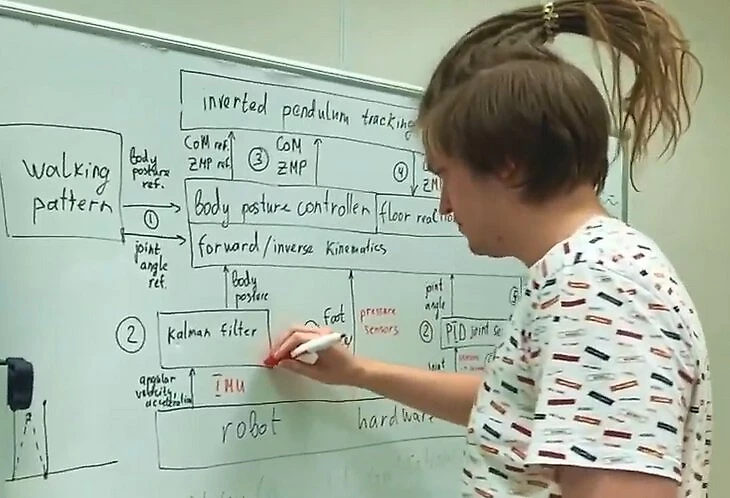 inverted pendulum tracking
CoM ref.
ZMP ref.
3
CoM
ZMP
4
walking
pattern
body
posture
ref.
1
joint
angle
ref.
body posture controller
floor
forward/inverse kinematics
body
posture
foot
pressure
sensors
joint
angle
5
2
kalman filter
2
PID joint
angular
velocity
acceleration
IMU
joint
robot hardware